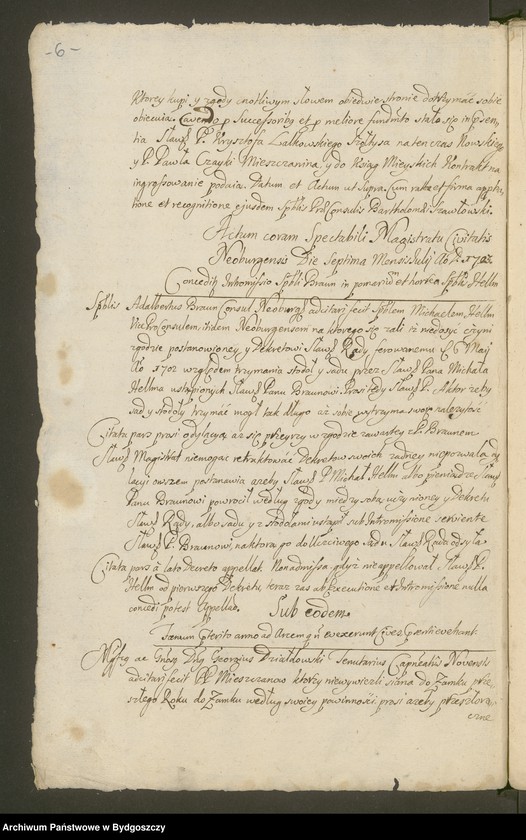 -6-
Ktorey kupi y zgody cnotliwym słowem obiedwie stronie dotrzymać sobie
obiecuia. Successoribg et p meliore fundmto stało się in psen-
tia Sław P. Krysztofa Lalkowskiego Szołtysa na ten czas Nowskiego
y P. Pawła Czayki Mieszczanina, y do Ksiąg Mieyskich Kontrakt na
ingrossowanie podaia. Datum et Actum ut supra. Cum
tione et recognitione ejusdem Spblis ProConsulis Bartholomæi Szawłowski.
Actum coram Spectabili Magistratu Civitatis
Neoburgensis Die Septima Mensis Julij Ao D. 1702
Concedit Intromissio Spbli Braun in et hortica Spblis Hellm
Spblis Adalbertus Braun Consul Neoburg adcitari fecit Spblem Michaelem Hellm
ViceProConsulem, itidem Neoburgensem na ktorego się zali iż niedosyć czyni
zgodzie postanowioney y Dekretowi Sław Rady ferowanemu 6 Maij
Ao 1702 względem trzymania stodoły y sadu przez Sław Pana Michała
Hellma ustąpionych Sław Panu Braunowi. Prosi tedy Sław P. Aktor żeby
sad y stodoły trzymać mogł tak długo aż sobie wytrzyma swoię należytość
Citata pars prosi odyłaiąc aż się przeyrzy w zgodzie zawartey z P. Braunem
Sław Magistrat niemogąc retraktować Dekretow swoich żadney niepozwala
lacyi owszem postanawia ażeby Sław P Michał Hellm albo pieniądze Sław
Panu Braunowi powrocił według zgody między sobą uczynioney y Dekretu
Sław Rady, albo sadu y z stodołami ustąpił sub Intromissione serviente
Sław P. Braunowi, na ktorą go do Uczciwego sadu Sław Rada odsyła.
Citata pars a lato Decreto appellat. Non admissa, gdyż nie appellował Sław P.
Hellm od pierwszego Dekretu, teraz zas ab Executione et Intromissione nulla
concedi potest Appellao.
Sub eodem
Fænum præterito anno ad Arcem qd n evexerunt Cives præsenti evehant.
Mgficg ac Gnosg Dng Georgius Działdowski Tenutarius Capneatis Novensis
adcitari fecit PP Mieszczanow ktorzy niewywiezli siana do Zamku prze-
szłego Roku do Zamku według swoiey powinności prosi ażeby przeszłoro-
czne
Archiwum Państwowe w Bydgoszczy